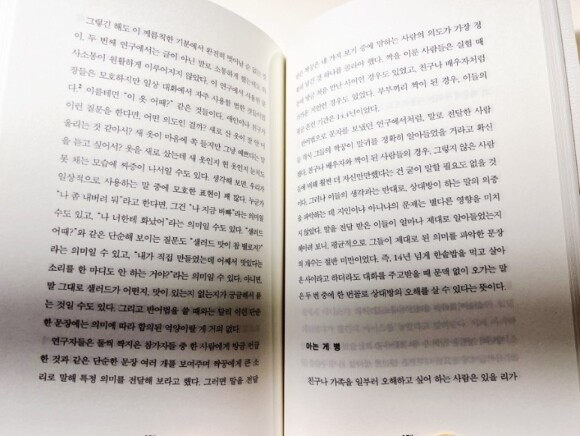 그렇긴 해도 이 께름칙한 기분에서 완전히 벗어날 순 없
이, 두 번째 연구에서는 글이 아닌 말로 소통하게 했는데도
사소통이 원활하게 이루어지지 않았다. 이 연구에서 사용한
장들은 모호하지만 일상 대화에서 자주 사용할 법한 것들이
다.² 이를테면 “이 옷 어때?” 같은 것들이다. 애인이나 친구가
이런 질문을 한다면, 어떤 의도인 걸까? 새로 산 옷이 잘 안
울리는 것 같아서? 새 옷이 마음에 쏙 들지만 그냥 예쁘다는
을 듣고 싶어서? 옷을 새로 샀는데 새 옷인지 헌 옷인지
못 채는 모습에 짜증이 나서일 수도 있다. 생각해 보면, 우리가
일상적으로 사용하는 말 중에 모호한 표현이 꽤 많다. 누군가
“나 좀 내버려 둬”라고 한다면, 그건 “나 지금 바빠”라는 의미일
수도 있고, “나 너한테 화났어”라는 의미일 수도 있다. “샐러드
어때?”와 같은 단순해 보이는 질문도 “샐러드 맛이 참 별로지?”
라는 의미일 수 있고, “내가 직접 만들었는데 어째서 맛있다는
소리를 한 마디도 안 하는 거야?”라는 의미일 수 있다. 아니면,
말 그대로 샐러드가 어떤지, 맛이 있는지 없는지가 궁금해서
는 것일 수도 있다. 그리고 반어법을 쓸 때와는 달리 이런 단순
한 문장에는 의미에 따라 합의된 억양이랄 게 거의 없다.
연구자들은 둘씩 짝지은 참가자들 중 한 사람에게 방금
한 것과 같은 단순한 문장 여러 개를 보여주며 짝꿍에게 큰 소
리로 말해 특정 의미를 전달해 보라고 했다. 그러면 말을 전달
네 가지 보기 중에 말하는 사람의 의도가 가장 정
것 하나를 골라야 했다. 짝을 이룬 사람들은 실험 때
만난 사이인 경우도 있었고, 친구나 배우자처럼
경우도 있었다. 부부끼리 짝이 된 경우, 이들의
기간은 14.4년이었다.
문자를 보냈던 연구에서처럼, 말로 전달한 사람
그들의 짝꿍이 말귀를 정확히 알아들었을 거라고 확신
친구나 배우자와 짝이 된 사람들의 경우, 그렇지 않은 사람
에 비해 훨씬 더 자신만만했다는 건 굳이 말할 필요도 없을 것
이다. 그러나 이들의 생각과는 반대로, 상대방이 하는 말의 의중
을 파악하는 데 지인이냐 아니냐의 문제는 별다른 영향을 미치
않았다. 말을 전달 받은 이들이 얼마나 제대로 알아들었는지
보니, 평균적으로 그들이 제대로 된 의미를 파악한 문장
의 개수는 절반 미만이었다. 즉, 14년 넘게 한솥밥을 먹고 살아
온 사이라고 하더라도 대화를 주고받을 때 문맥 없이 오가는 말
은 두 번 중에 한 번꼴로 상대방의 오해를 살 수 있다는 뜻이다.
아는 게 병
친구나 가족을 일부러 오해하고 싶어 하는 사람은 있을 리가